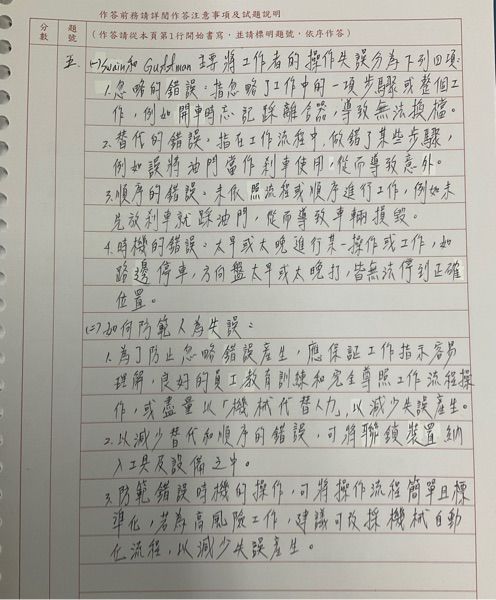 作答前務請詳閱作答注意事項及試題說明
分數 題號 (作答請從本頁第1行開始書寫，並請標明題號，依序作答)
五、(一)Swain和 Guttman 主要將工作者的操作失誤分為下列四項:
1.忽略的錯誤：指忽略了工作中的一項步驟或整個工
作，例如開車時忘記踩離合器，導致無法換檔。
2.替代的錯誤，指在工作流程中，做錯了某些步驟，
例如誤將油門當作剎車使用，從而導致意外。
3.順序的錯誤。未依照流程或順序進行工作，例如未
先放剎車就踩油門，從而導致車輛損毀。
4.時機的錯誤。太早或太晚進行某一操作或工作，如
路邊停車，方向盤太早或太晚打，皆無法停到正確
位置。
(二)如何防範人為失誤：
1.為了防止忽略錯誤產生，應保証工作指示容易
理解，良好的員工教育訓練和完全遵照工作流程操
作，或盡量以機械代替人力，以減少失誤產生。
2.以減少替代和順序的錯誤，可將聯鎖裝置納
入工具及設備之中。
3.防範錯誤時機的操作，可將操作流程簡單且標
準化，若為高風險工作，建議可改採機械自動
化流程，以減少失誤產生。